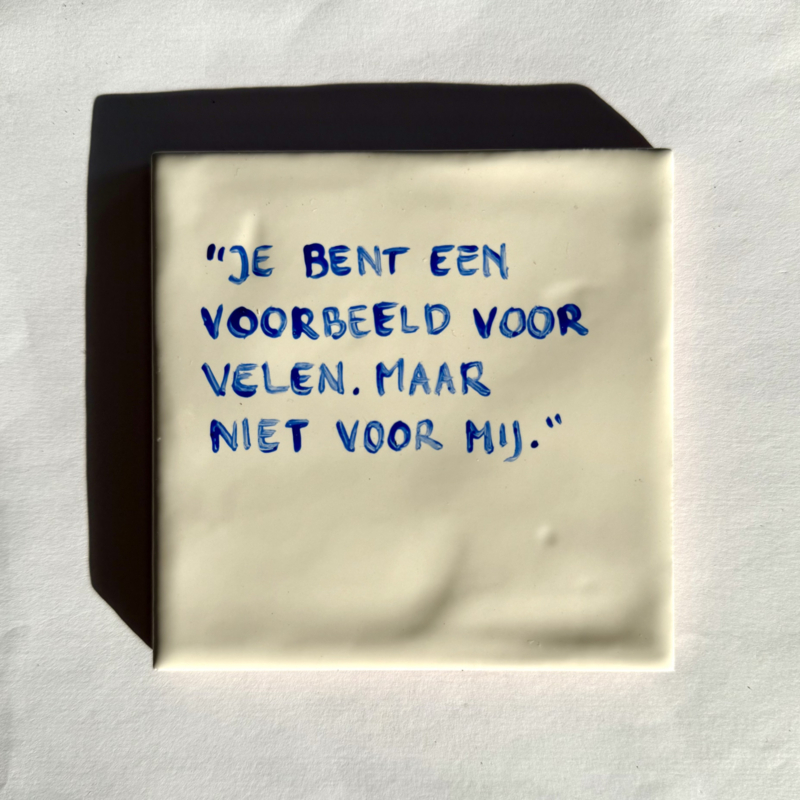 "JE BENT EEN
VOORBEELD VOOR
VELEN. MAAR
NIET VOOR MIJ."